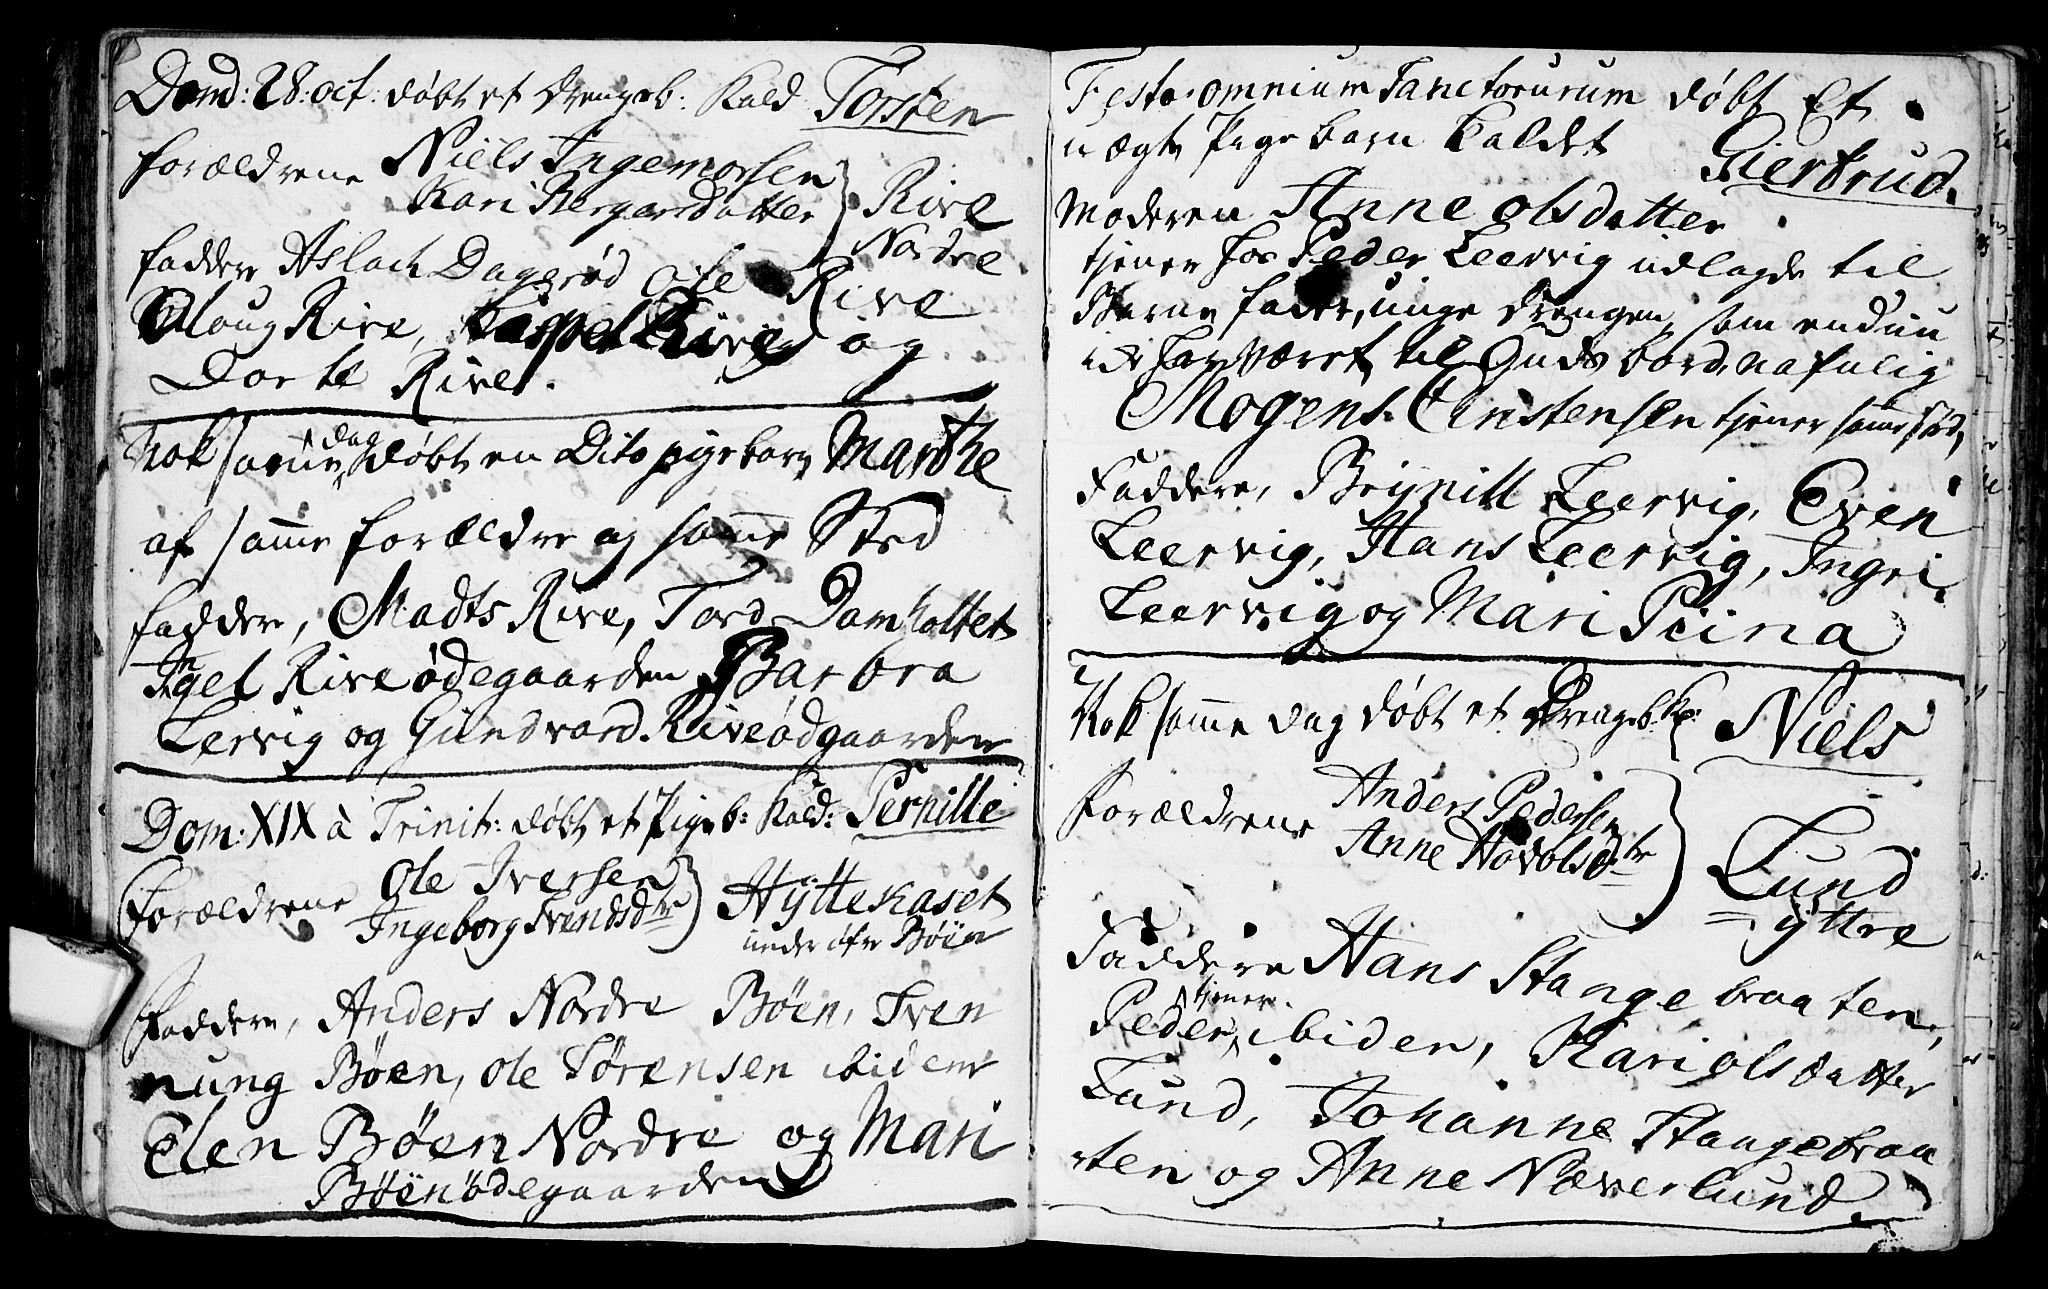 Dend: 28: oct: døbt et Drengeb: Kald Torsten
forældrene Niels Ingemorsen
Kari Bergersdatter } Rive
Nordre
faddere Aslach Dagerød Ole Rive
Oloug Rive, og
Dorte Rive.
Nok samme dag døbt en Dito pigebarn Marthe
af samme forældre og samme Sted
faddere, Madts Rive, Tord Damholtet
Ingel Rive ødegaarden Barbra
Lervig og Gundvord Riveødgaarden
Dom: XIX à Trinit: døbt et Pigeb: Kald: Pernille
forældrene Ole Iversen
Ingeborg Svendsdtr } Hÿttekaset
under øfre Böen
Faddere, Anders Nordre Bøen, Sven
nung Bøen, Ole Sørensen ibidem
Elen Bøen Nordre og Mari
Bøenødegaarden
Festo omnium Sanctorurum døbt Et
uægte Pigebarn kaldet Giertrud.
Moderen Anne olsdatter
tjener hos Peder Leervig udlagde til
Barne fader, unge Drengen som endnu
ei har været til Guds bord, nafnlig
Mogens Christensen tjener samme sted,
Faddere, Brÿnill Leervig, Even
Leervig, Hans Leervig, Ingri
Leervig og Mari Piina
Nok samme dag døbt et Drengeb: K: Niels
Forældrene Anders Pedersen
Anne Hovolsdtr } Lund
ÿttre
Faddere Hans Stangebraaten,
Peder tjener ibidem, Kari olsdatter
Lund, Johanne Stangebraa
ten og Anne Næverlund